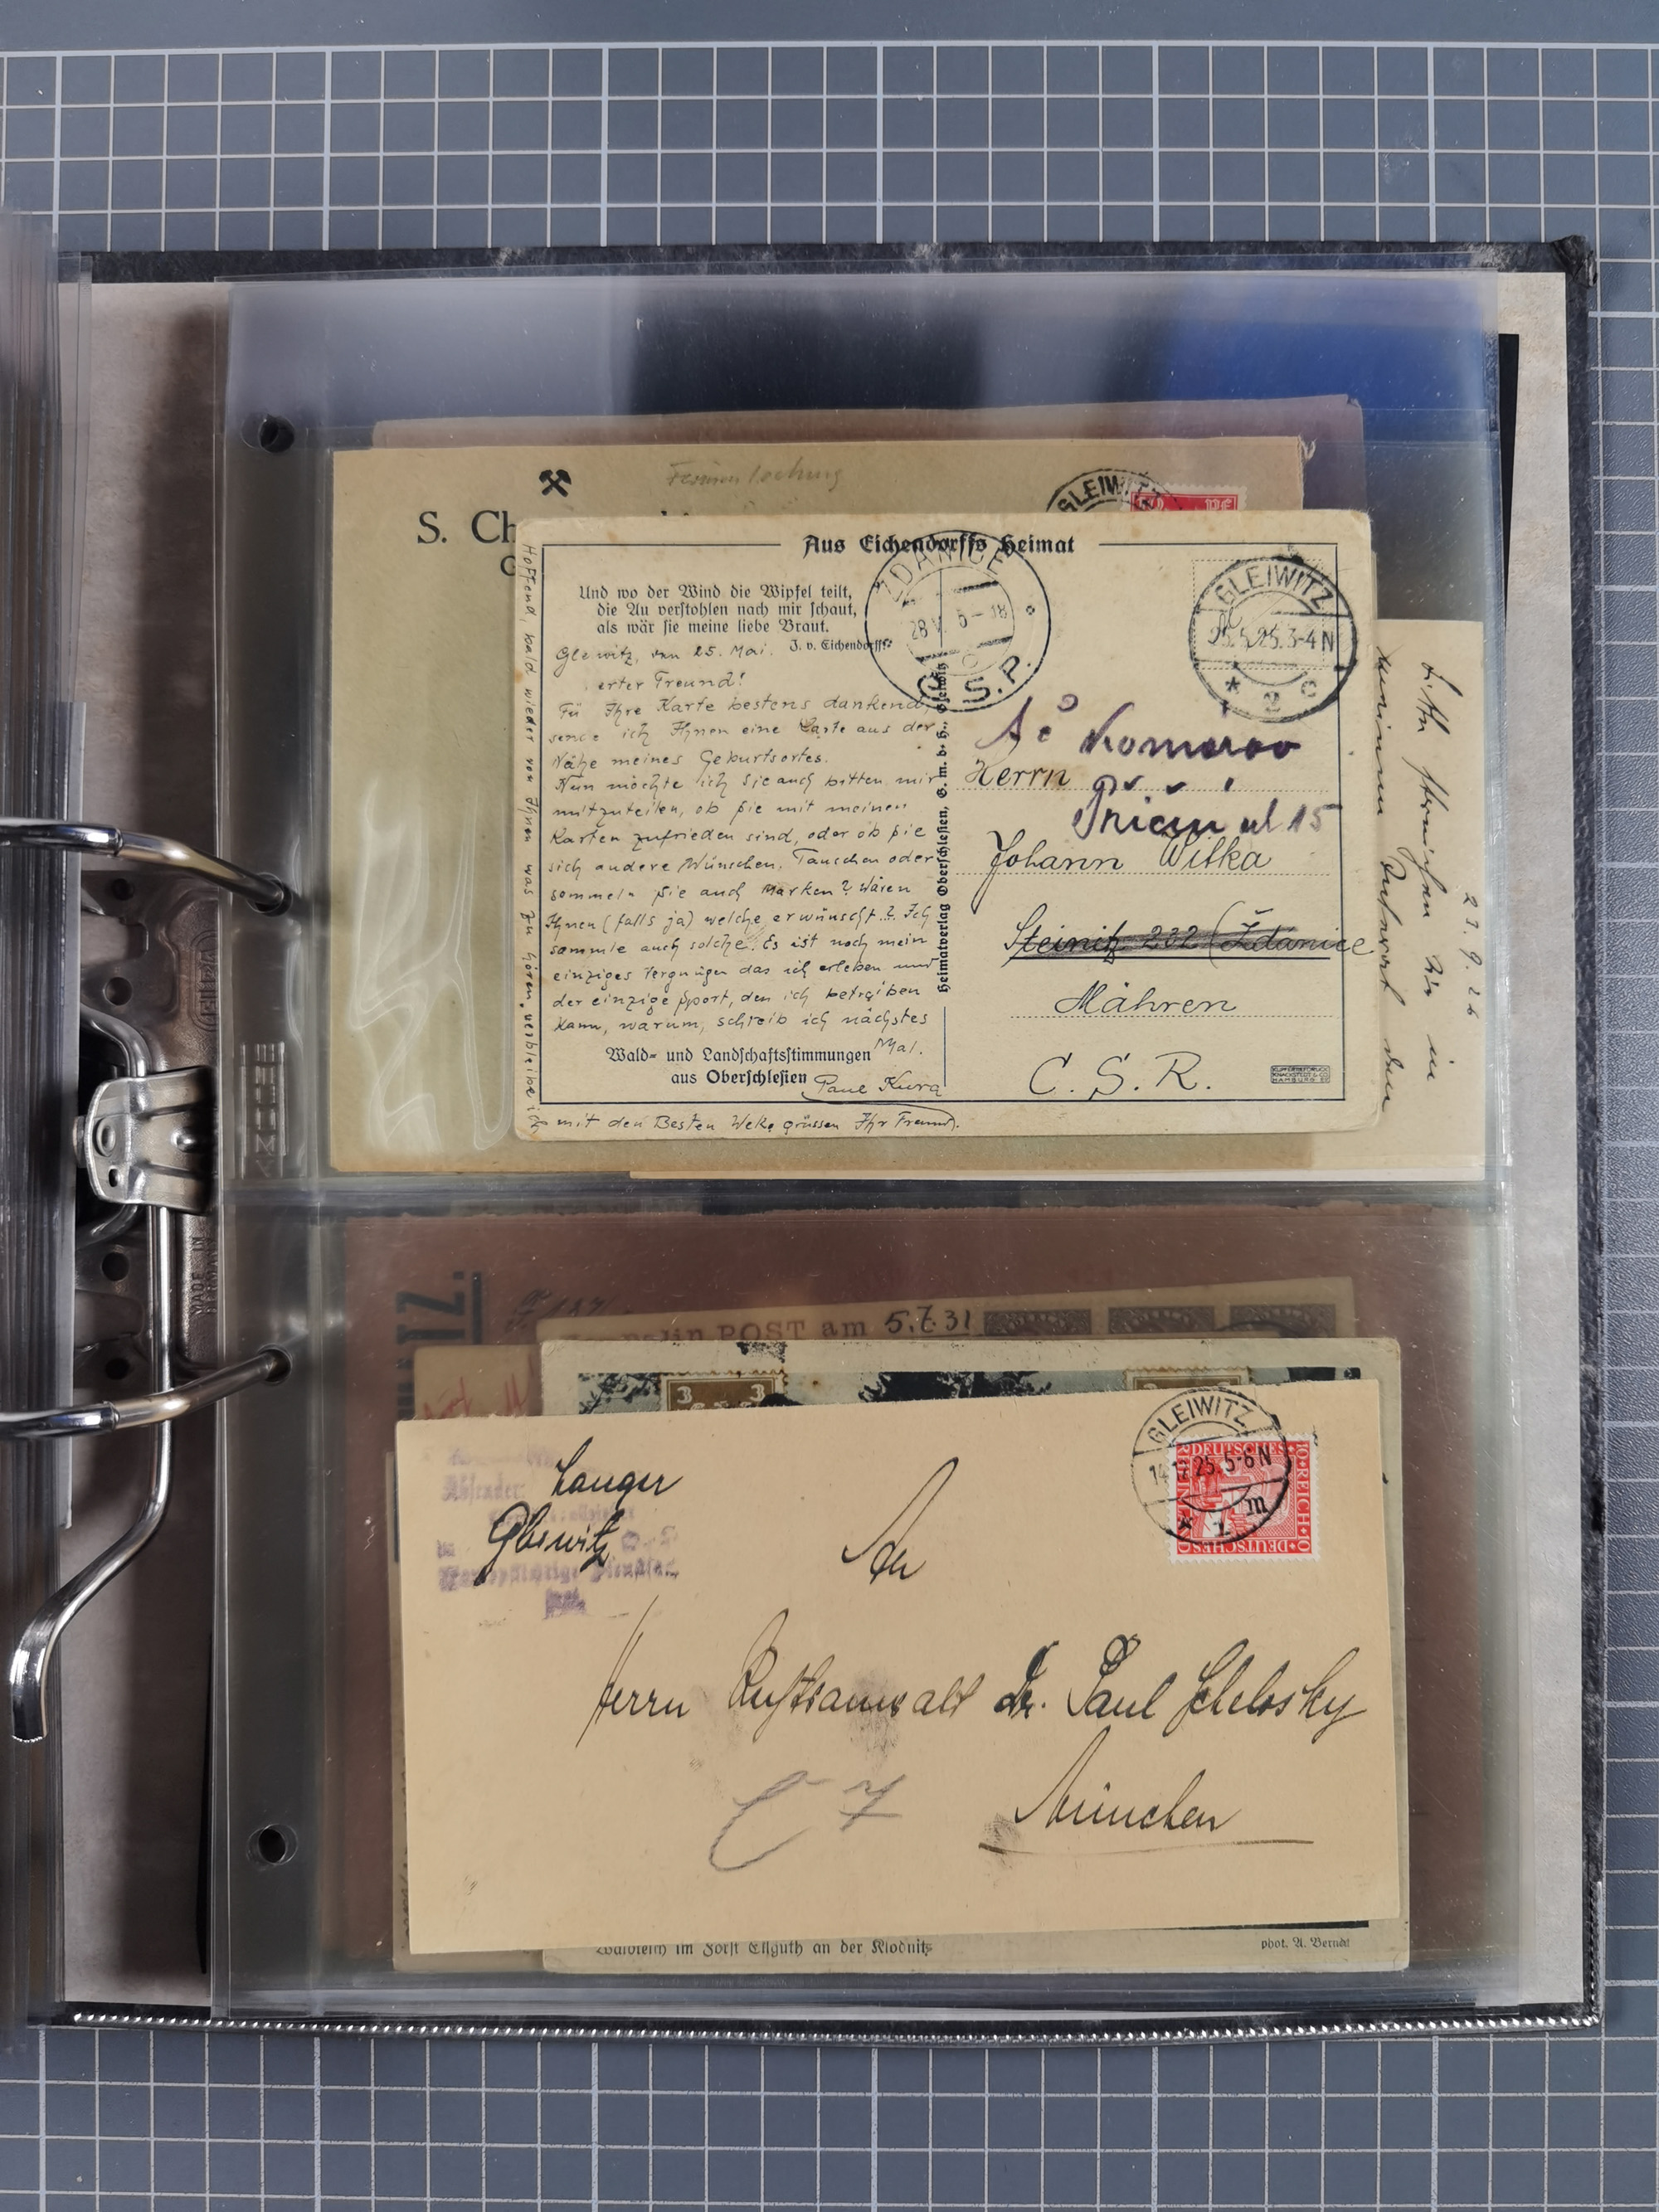 S. Ch
GLEIWITZ
Aus Eichendorffs Heimat
Und wo der Wind die Wipfel teilt,
die Au verstohlen nach mir schaut,
als wär sie meine liebe Braut.
J. v. Eichendorff.
ŽDANICE
28 V 6-18
Č.S.P.
GLEIWITZ
25.5.25.3-4 N
* 2 c
Gleiwitz, den 25. Mai.
erter Freund!
Fü Ihre Karte bestens dankend,
sende ich Ihnen eine Karte aus der
Nähe meines Geburtsortes.
Nun möchte ich Sie auch bitten mir
mitzuteilen, ob Sie mit meinen
Karten zufrieden sind, oder ob Sie
sich andere Wünschen. Tauschen oder
sommeln Sie auch Marken? Wären
Ihnen (falls ja) welche erwünscht? Ich
sammle auch solche. Es ist noch mein
einziges Vergnügen das ich erleben und
der einzige Sport, den ich betreiben
kann, warum, schreib ich nächstes
Mal.
Paul Kura
Hoffend, bald wieder von Ihnen was zu hören, verbleibe ich
mit den Besten Grüssen Ihr Freund.
Wald- und Landschaftsstimmungen
aus Oberschlesien
Heimatverlag Oberschlesien, G. m. b. H., Gleiwitz
Komarov
Příční ul 15
Herrn
Johann Witka
Steinitz 202 (Ždanice
Mähren
C. S. R.
KUPFERTIEFDRUCK
KNACKSTEDT & CO
HAMBURG
23. 9. 26
MADE IN
GERMANY
TZ.
POST am 5.7.31
3 3
Langer
Gleiwitz
Absender:
GLEIWITZ
25.5-6 N
* 1 m
DEUTSCHES
REICH
10
An
Herrn Rechtsanwalt Dr. Paul Schelosky
München
C 7
Waldteich im Forst Ellguth an der Klodnitz
phot. A. Berndt